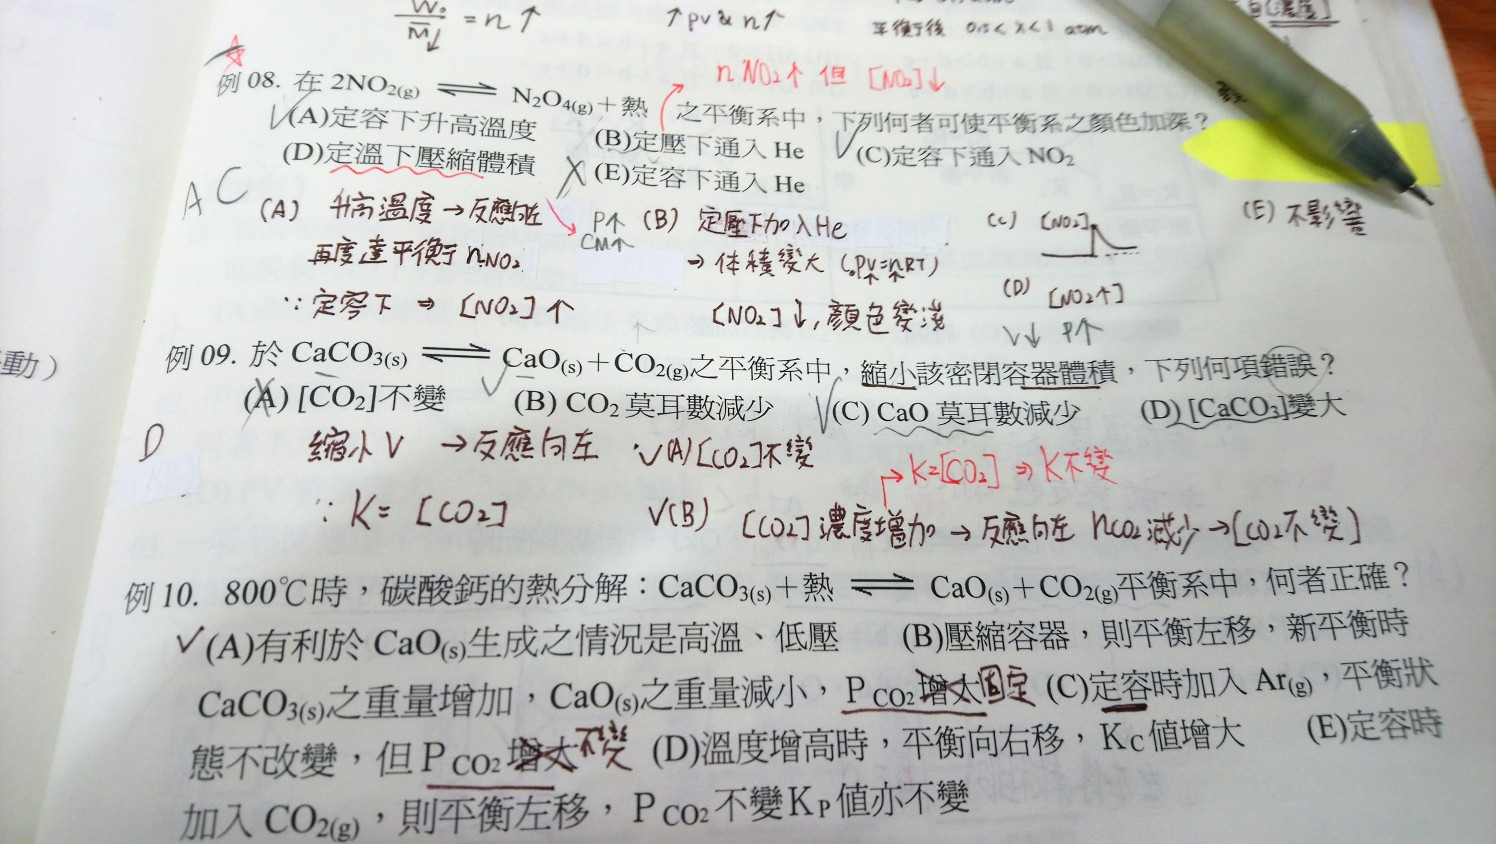 W₀/M↓ = n↑
↑pv & n↑
平衡後 0.5 < x < 1 atm
nNO₂↑ 但 [NO₂]↓
例 08. 在 2NO₂(g) ⇌ N₂O₄(g)＋熱 之平衡系中，下列何者可使平衡系之顏色加深？
(A)定容下升高溫度 (B)定壓下通入 He (C)定容下通入 NO₂
(D)定溫下壓縮體積 (E)定容下通入 He
A C
(A) 升高溫度→反應向左
再度達平衡于 nNO₂
∵定容下 ⇒ [NO₂]↑
P↑
CM↑
(B) 定壓下加入He
→ 体積變大 (∵PV=nRT)
[NO₂]↓, 顏色變淺
(C) [NO₂]
(D) [NO₂↑]
V↓ P↑
(E) 不影響
動）
例 09. 於 CaCO₃(s) ⇌ CaO(s)＋CO₂(g)之平衡系中，縮小該密閉容器體積，下列何項錯誤？
(A) [CO₂]不變 (B) CO₂ 莫耳數減少 (C) CaO 莫耳數減少 (D) [CaCO₃]變大
D
縮小V →反應向左
∵ K= [CO₂]
∨(A)[CO₂]不變
→K=[CO₂] ⇒ K不變
∨(B) [CO₂]濃度增加 → 反應向左 nCO₂減少→[CO₂不變]
例 10. 800℃時，碳酸鈣的熱分解：CaCO₃(s)＋熱 ⇌ CaO(s)＋CO₂(g)平衡系中，何者正確？
✓(A)有利於 CaO(s)生成之情況是高溫、低壓 (B)壓縮容器，則平衡左移，新平衡時
CaCO₃(s)之重量增加，CaO(s)之重量減小，P CO₂ 增大 固定 (C)定容時加入 Ar(g)，平衡狀
態不改變，但 P CO₂ 增大 不變 (D)溫度增高時，平衡向右移，Kc 值增大 (E)定容時
加入 CO₂(g)，則平衡左移，P CO₂ 不變 KP 值亦不變